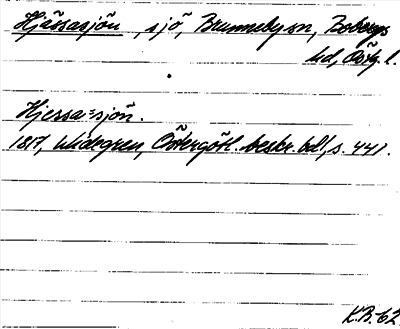 Hjässasjön, sjö, Brunneby sn, Bobergs
hd, Östg. l.
Hjessa-sjön.
1817, Widegren, Östergötl. beskr. bd 1, s. 441.
K.B. 62